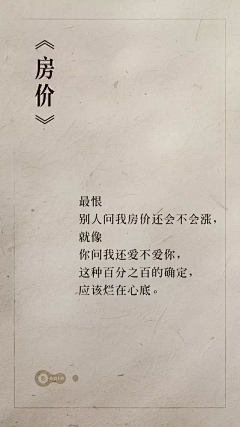 《房价》
最恨
别人问我房价还会不会涨，
就像
你问我还爱不爱你，
这种百分之百的确定，
应该烂在心底。